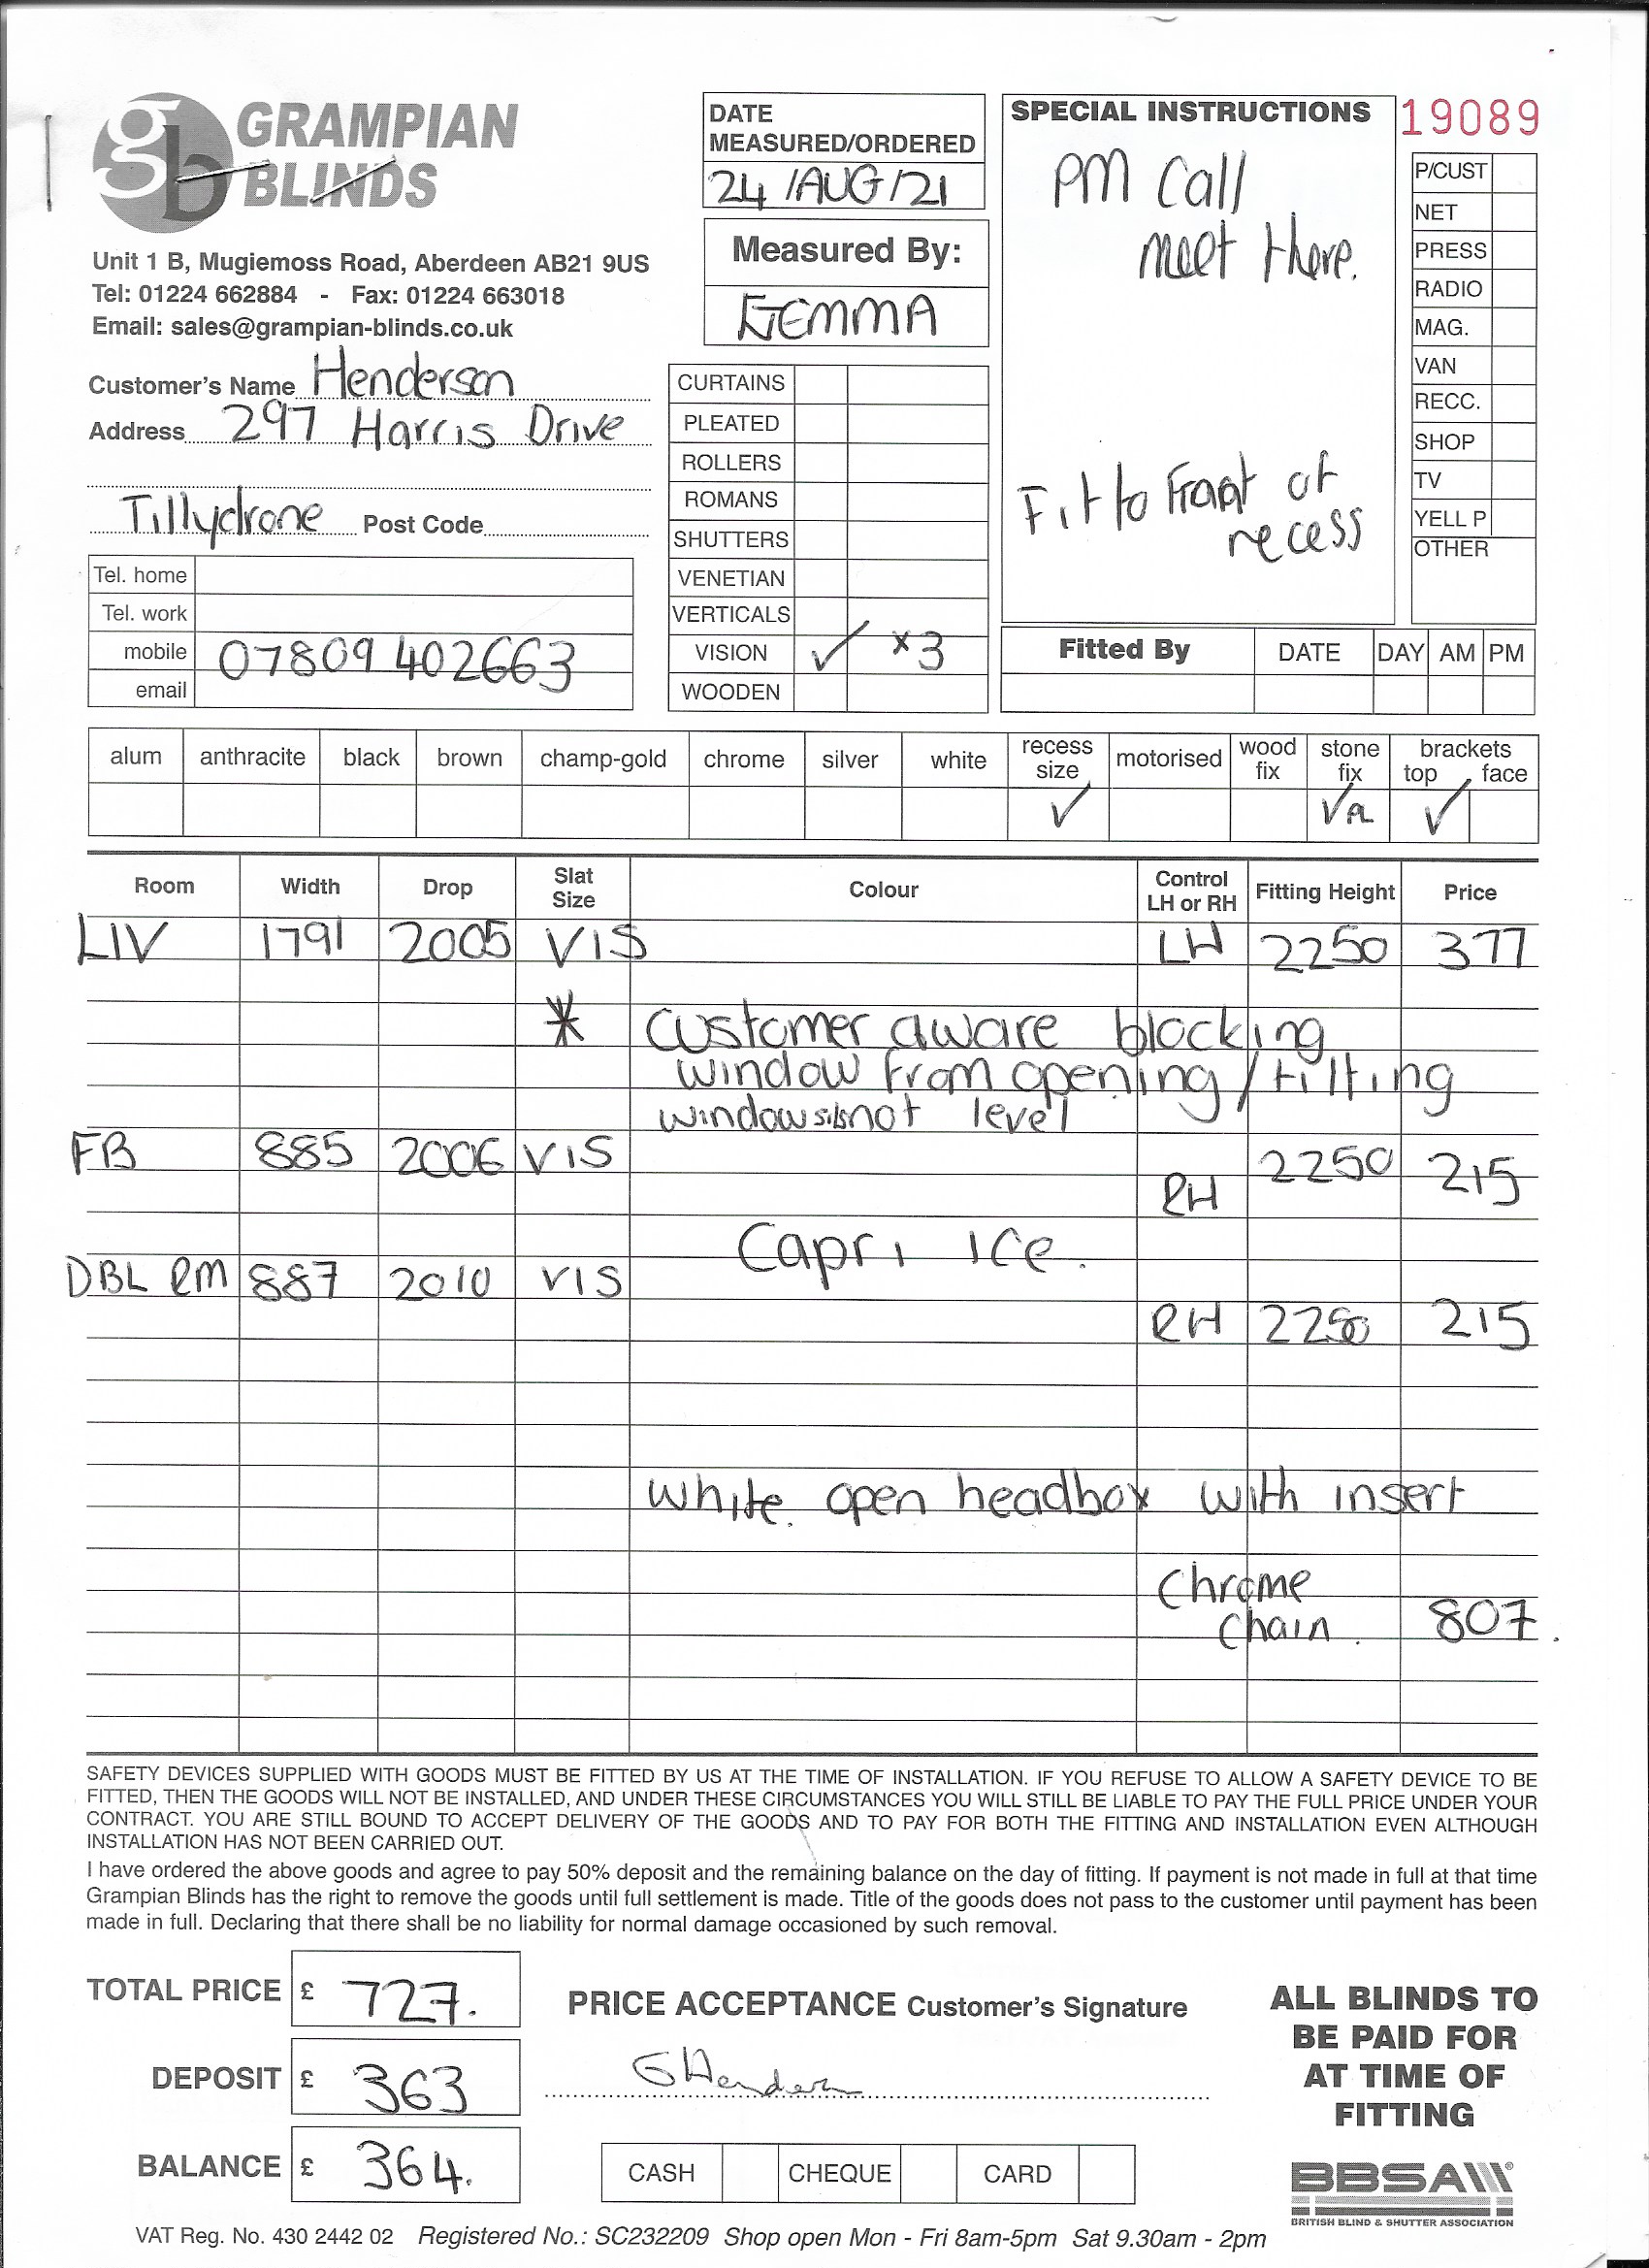 gb GRAMPIAN
BLINDS
Unit 1 B, Mugiemoss Road, Aberdeen AB21 9US
Tel: 01224 662884 - Fax: 01224 663018
Email: sales@grampian-blinds.co.uk
Customer's Name Henderson
Address 297 Harris Drive
Tillydrone Post Code
Tel. home
Tel. work
mobile 07809 402663
email
DATE
MEASURED/ORDERED
24/AUG/21
Measured By:
GEMMA
CURTAINS
PLEATED
ROLLERS
ROMANS
SHUTTERS
VENETIAN
VERTICALS
VISION ✓ x3
WOODEN
SPECIAL INSTRUCTIONS
PM Call
meet there.
Fit to Front of
recess
19089
P/CUST
NET
PRESS
RADIO
MAG.
VAN
RECC.
SHOP
TV
YELL P
OTHER
Fitted By DATE DAY AM PM
alum anthracite black brown champ-gold chrome silver white recess size motorised wood fix stone fix brackets top face
✓ ✓ ✓
Room Width Drop Slat Size Colour Control LH or RH Fitting Height Price
LIV 1791 2005 VIS LH 2250 377
* Customer aware blocking
window from opening / tilting
not level
FB 885 2006 VIS RH 2250 215
Capri Ice.
DBL RM 887 2010 VIS
RH 2250 215
White open headbox with insert
Chrome
Chain. 807.
SAFETY DEVICES SUPPLIED WITH GOODS MUST BE FITTED BY US AT THE TIME OF INSTALLATION. IF YOU REFUSE TO ALLOW A SAFETY DEVICE TO BE
FITTED, THEN THE GOODS WILL NOT BE INSTALLED, AND UNDER THESE CIRCUMSTANCES YOU WILL STILL BE LIABLE TO PAY THE FULL PRICE UNDER YOUR
CONTRACT. YOU ARE STILL BOUND TO ACCEPT DELIVERY OF THE GOODS AND TO PAY FOR BOTH THE FITTING AND INSTALLATION EVEN ALTHOUGH
INSTALLATION HAS NOT BEEN CARRIED OUT.
I have ordered the above goods and agree to pay 50% deposit and the remaining balance on the day of fitting. If payment is not made in full at that time
Grampian Blinds has the right to remove the goods until full settlement is made. Title of the goods does not pass to the customer until payment has been
made in full. Declaring that there shall be no liability for normal damage occasioned by such removal.
TOTAL PRICE £ 727.
DEPOSIT £ 363
BALANCE £ 364.
PRICE ACCEPTANCE Customer's Signature
G Henderson
CASH CHEQUE CARD
ALL BLINDS TO
BE PAID FOR
AT TIME OF
FITTING
BBSA
BRITISH BLIND & SHUTTER ASSOCIATION
VAT Reg. No. 430 2442 02 Registered No.: SC232209 Shop open Mon - Fri 8am-5pm Sat 9.30am - 2pm